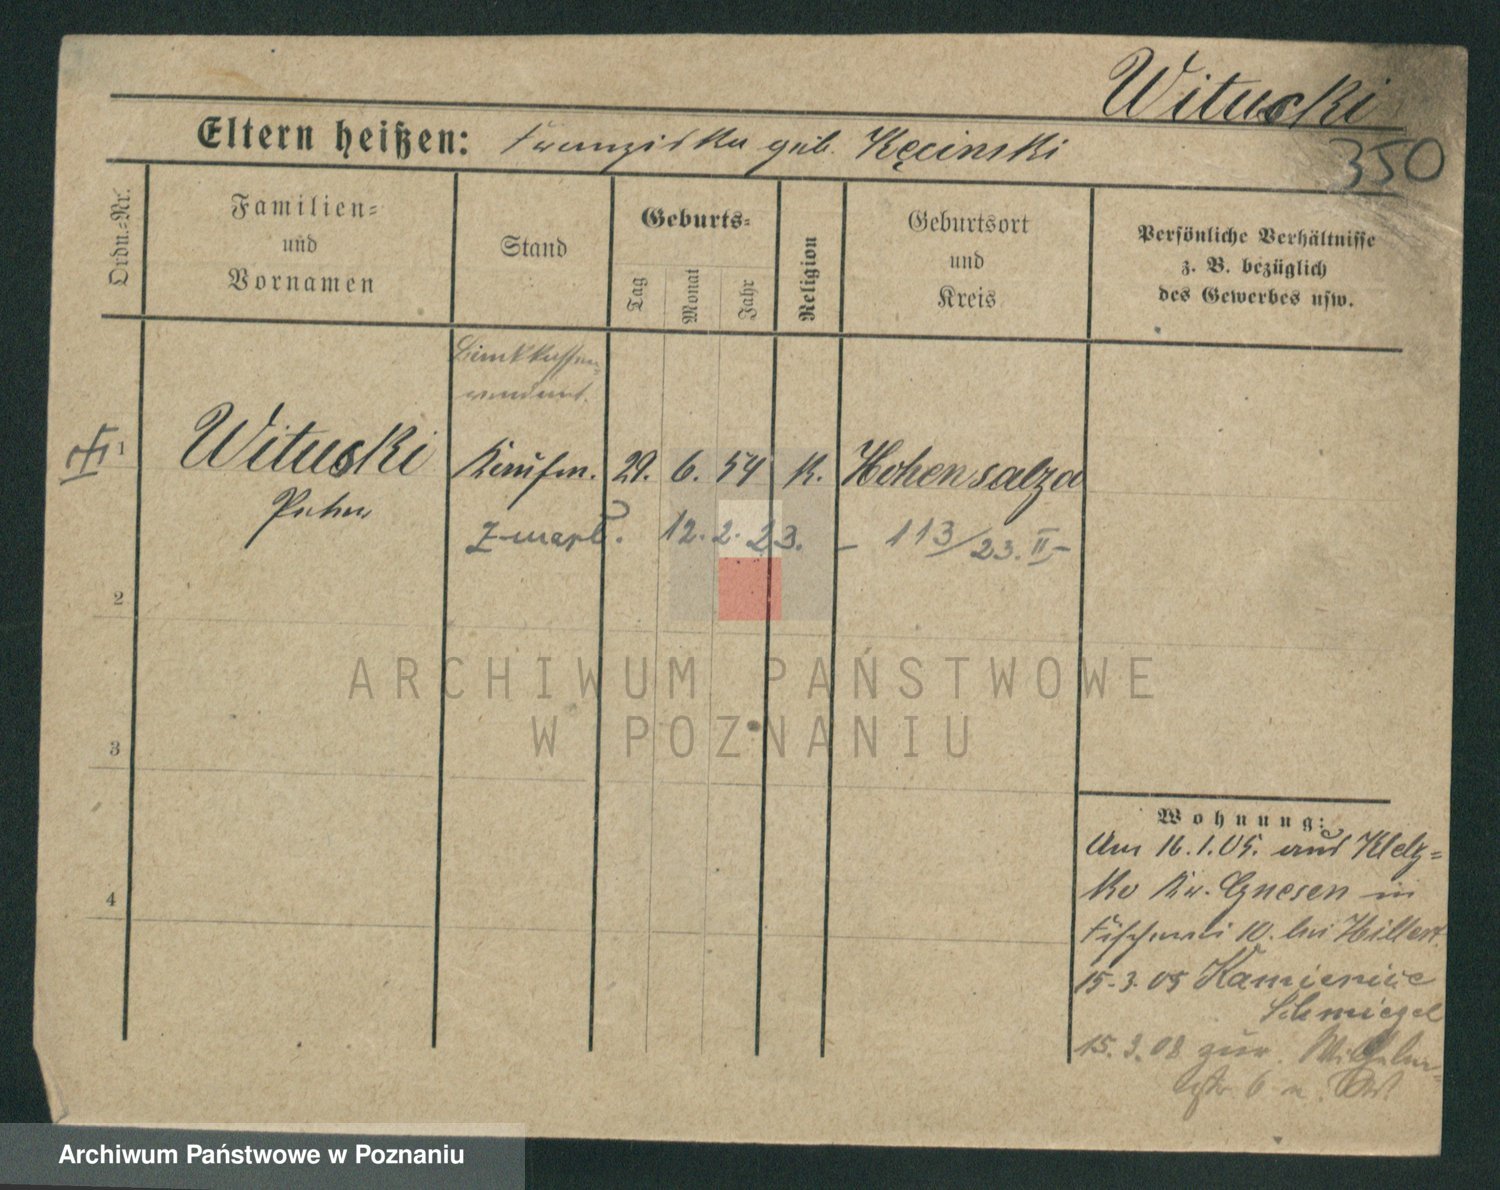 Wituski
350
Eltern heißen: Franziska geb. Kęcinski
Ordn.-Nr.
Familien-
und
Vornamen
Stand
Geburts-
Tag
Monat
Jahr
Religion
Geburtsort
und
Kreis
Persönliche Verhältnisse
z. B. bezüglich
des Gewerbes usw.
Bankkassen-
rendant.
1 Wituski Kaufm. 29. 6. 54 K. Hohensalza
Peter
zmarł. 12. 2. 23. – 113/23. II –
2
3
4
Wohnung:
Am 16.1.05. aus Kletz-
ko Kr. Gnesen in
Fischerei 10. bei Hillert.
15.3.05 Kamieniec
Schmiegel
15.3.08 zur. Wilhelm-
str. 6 u.
ARCHIWUM PAŃSTWOWE
W POZNANIU
Archiwum Państwowe w Poznaniu